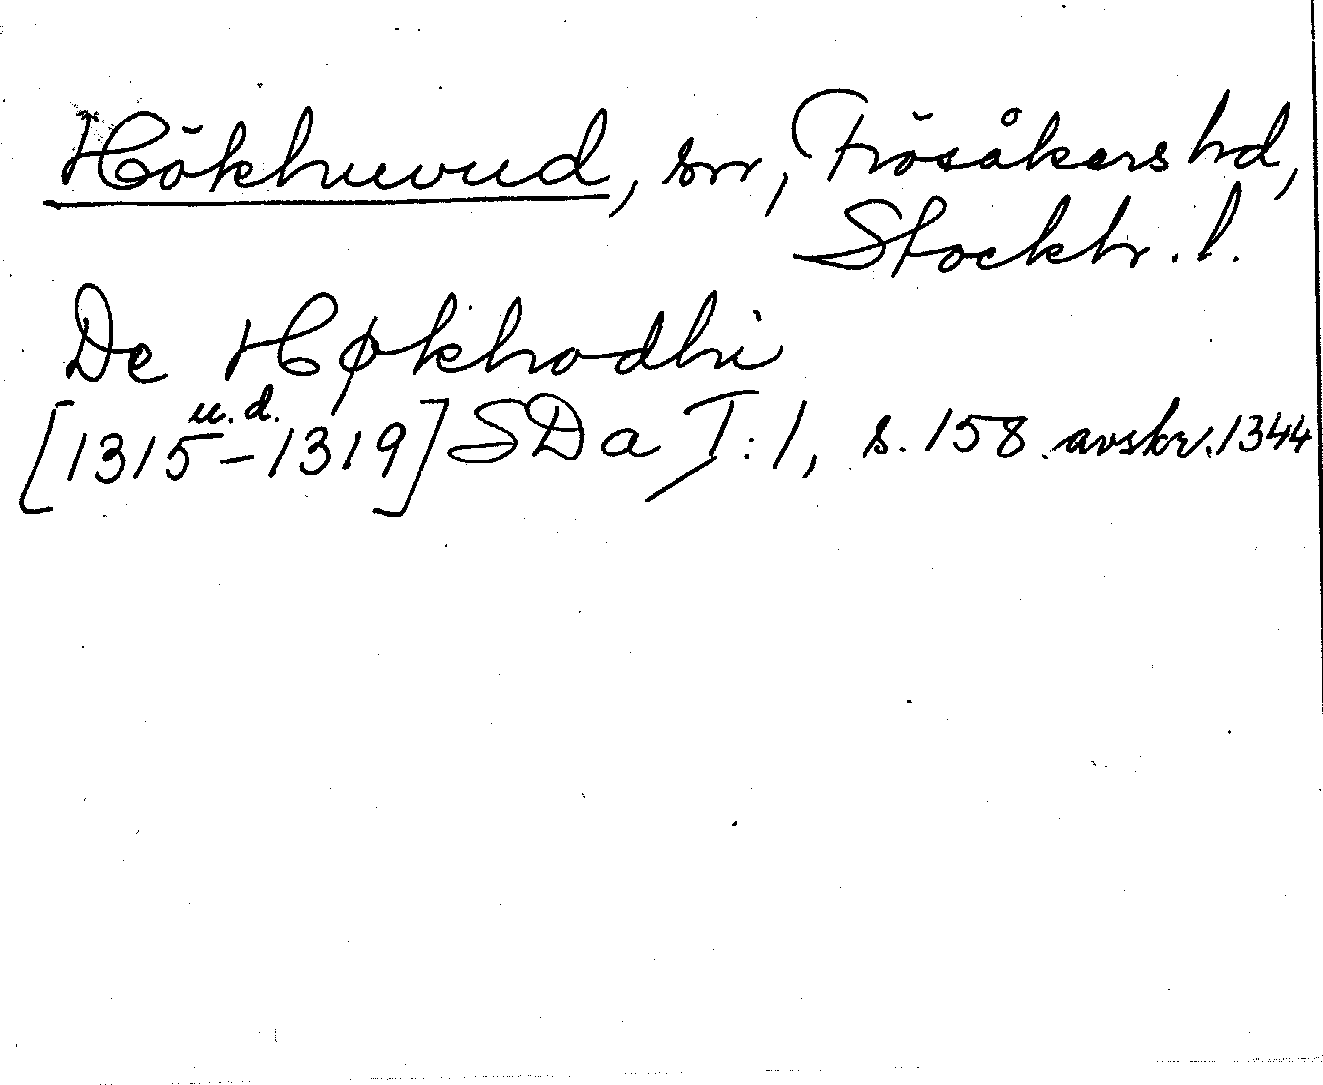 Hökhuvud, sn, Frösåkers hd,
Stockh. l.
De Høkhodhi
u. d.
[1315–1319] SDa I:1, s. 158 avskr. 1344